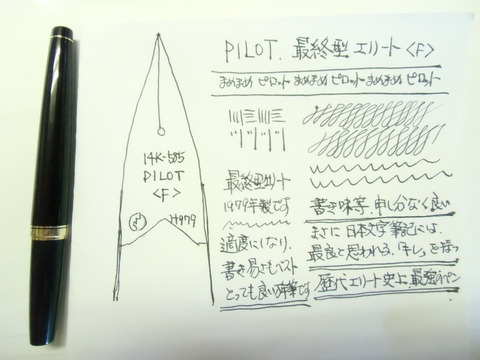 PILOT. 最終型エリート <F>
まめまめ ピロット まめまめ ピロット まめまめ ピロット
14K-585
PILOT
<F>
H979
最終型エリート
1979年製です
適度にしなり、
書き易さもベスト
とっても良い万年筆です
書き味等、申し分なく良い
まさに日本文字筆記には、
最良と思われる、「キレ」を持つ
歴代エリート史上、最強のペン